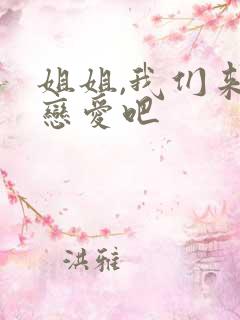 姐姐,我们来
戀爱吧
洪雅